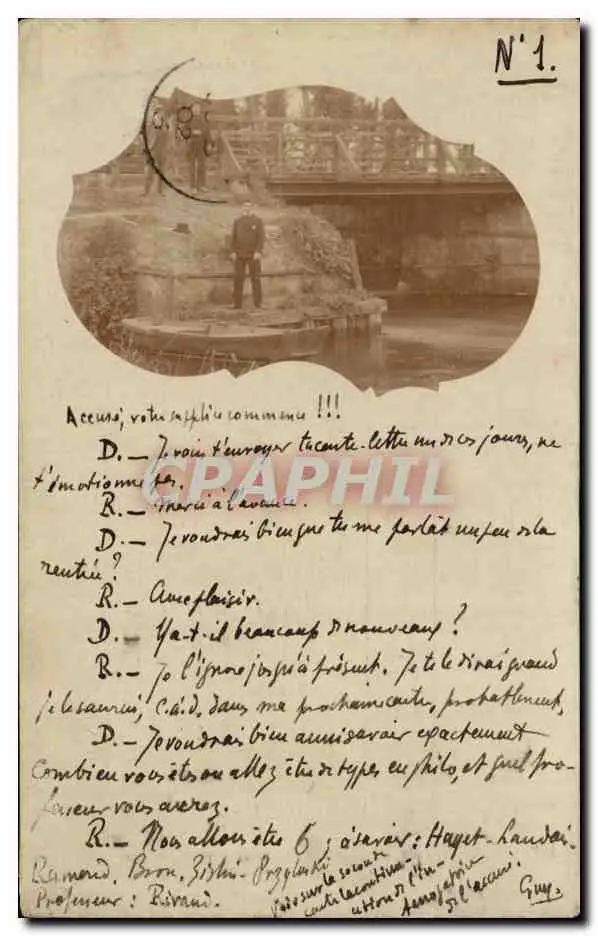 N° 1.
Accusé, votre supplice commence !!!
D. — Je vais t'envoyer ta carte-lettre un de ces jours, ne
t'émotionne pas.
CPARAMA
CPAPHIL
R. — Merci à l'avance.
D. — Je voudrais bien que tu me parlât un peu de la
rentrée ?
R. — Avec plaisir.
D. — Ya-t-il beaucoup de nouveaux ?
R. — Je l'ignore jusqu'à présent. Je te le dirai quand
je le saurai, c.à.d. dans ma prochaine carte, probablement.
D. — Je voudrais bien aussi savoir exactement
combien vous êtes ou allez être de types en philo, et quel pro-
fesseur vous aurez.
R. — Nous allons être 6 ; à savoir : Hayet - Landais -
Raimond, Bron, Przyluski
Professeur : Rivaud.
Voir sur la seconde
carte la continu-
ation de l'In-
terrogatoire
de l'accusé.
Guy.